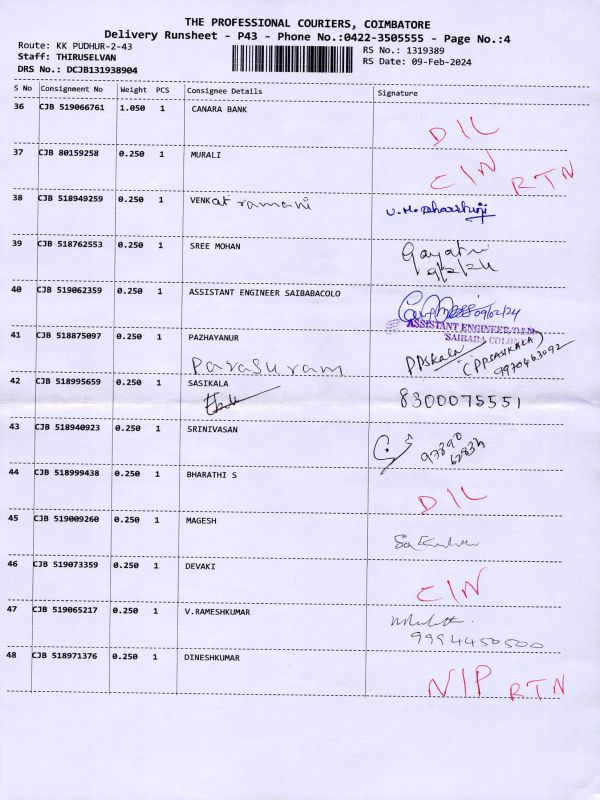 THE PROFESSIONAL COURIERS, COIMBATORE
Delivery Runsheet - P43 - Phone No.:0422-3505555 - Page No.:4
Route: KK PUDHUR-2-43 RS No.: 1319389
Staff: THIRUSELVAN RS Date: 09-Feb-2024
DRS No.: DCJB131938904
S No Consignment No Weight PCS Consignee Details Signature
36 CJB 519066761 1.050 1 CANARA BANK
D/L
37 CJB 80159258 0.250 1 MURALI
C/N RTN
38 CJB 518949259 0.250 1 VENKat ramani
39 CJB 518762553 0.250 1 SREE MOHAN
Gayatri
9/2/24
40 CJB 519062359 0.250 1 ASSISTANT ENGINEER SAIBABACOLO
09/02/24
ASSISTANT ENGINEER/O&M
SAIBABA COLONY
41 CJB 518875097 0.250 1 PAZHAYANUR
Parasuram PPSkala (PPSASIKALA)
9970463092
42 CJB 518995659 0.250 1 SASIKALA
8300075551
43 CJB 518940923 0.250 1 SRINIVASAN
97890
62834
44 CJB 518999438 0.250 1 BHARATHI S
D/L
45 CJB 519009260 0.250 1 MAGESH
46 CJB 519073359 0.250 1 DEVAKI
C/N
47 CJB 519065217 0.250 1 V.RAMESHKUMAR
9994450500
48 CJB 518971376 0.250 1 DINESHKUMAR
N/P RTN